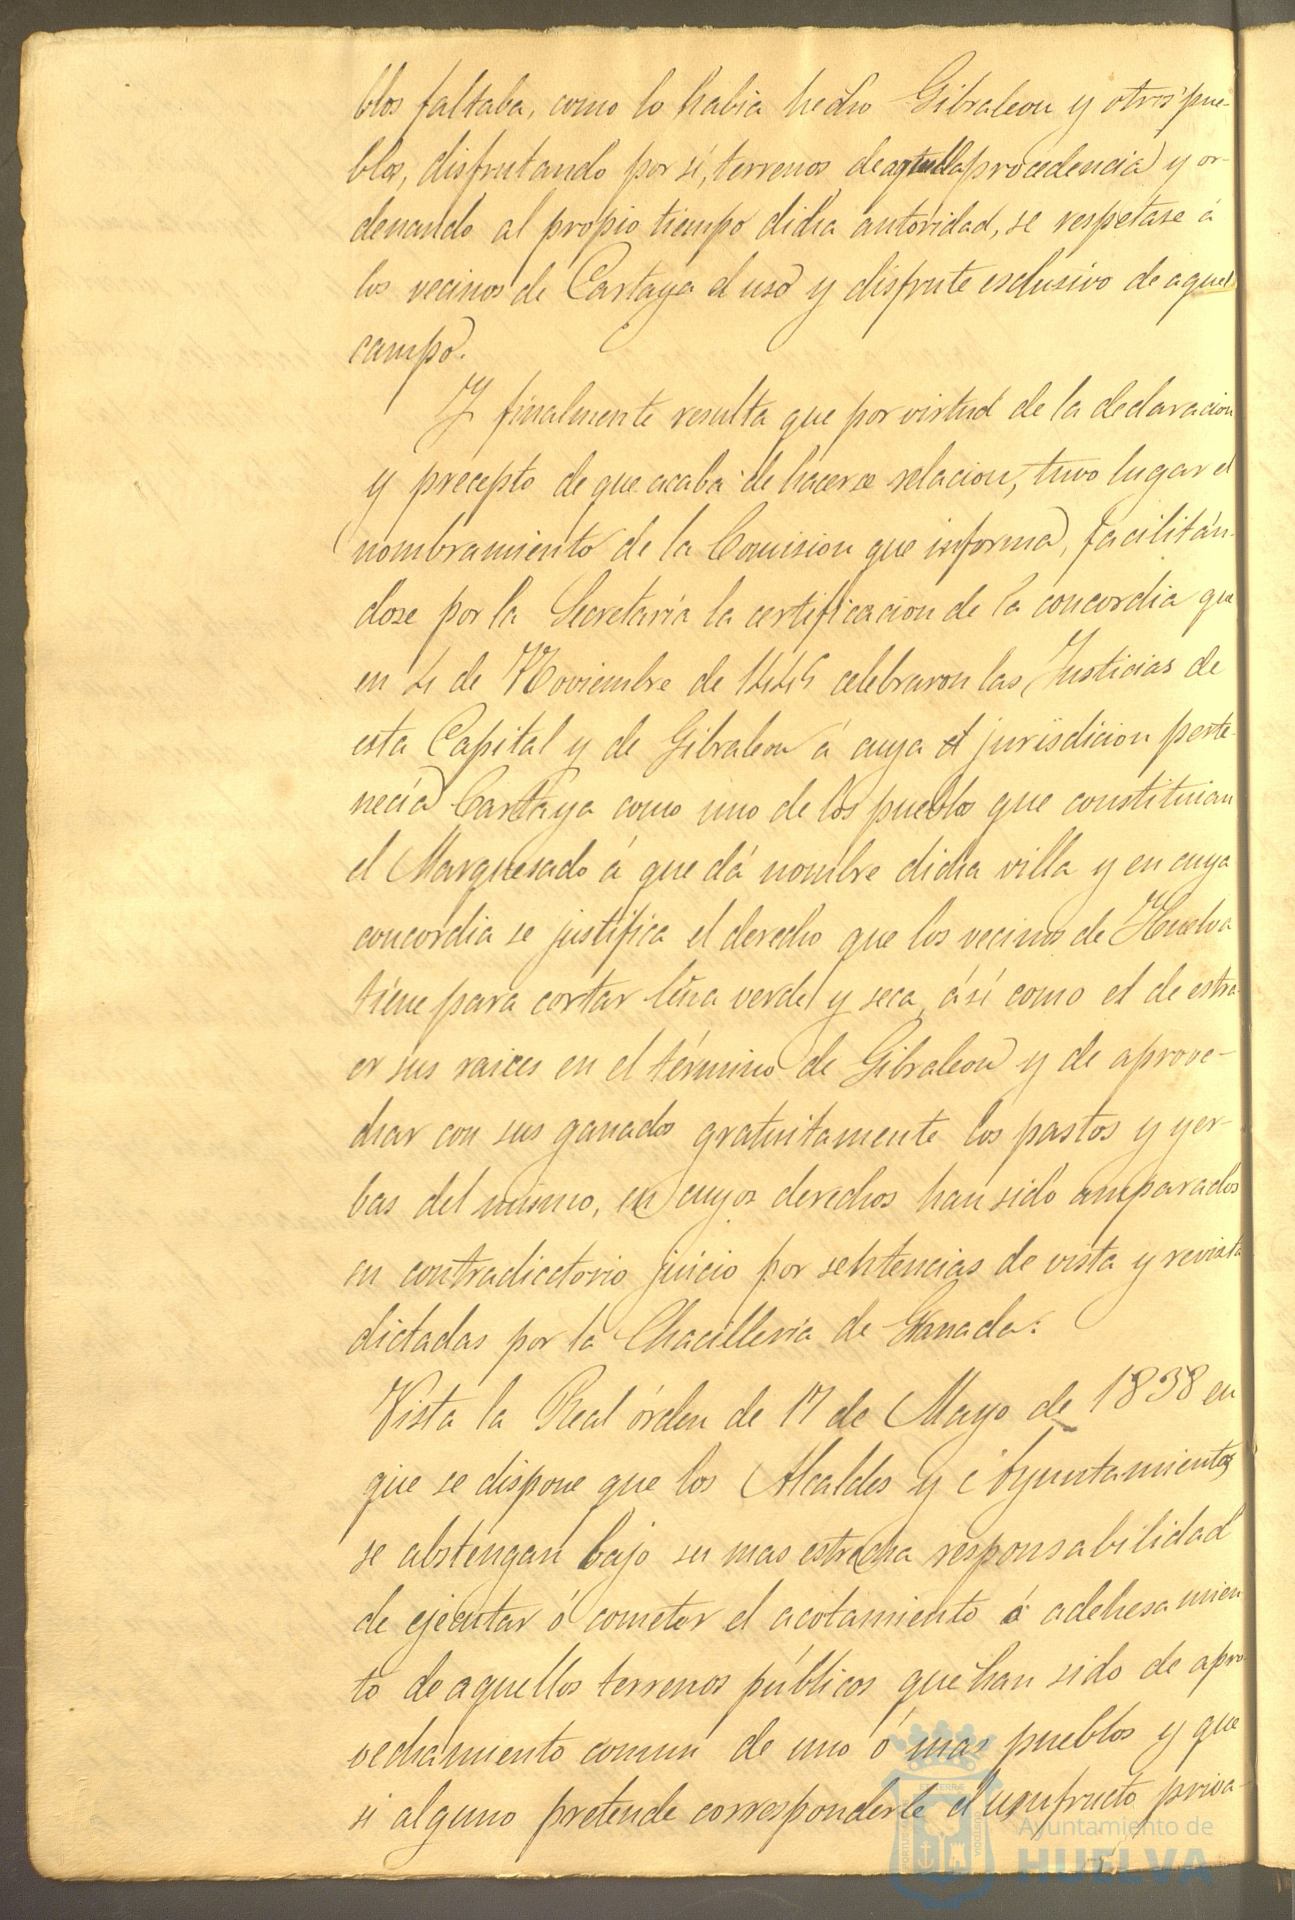 blos faltaba, como lo habia hecho Gibraleon y otros pue-
blos, disfrutando por sí, terrenos de aquella procedencia y or-
denando al propio tiempo dicha autoridad, se respetase á
los vecinos de Cartaya el uso y disfrute esclusivo de aquel
campo.
Y finalmente resulta que por virtud de la declaracion
y precepto de que acaba de hacerse relacion, tuvo lugar el
nombramiento de la Comision que informa, facilitán-
dose por la Secretaría la certificacion de la concordia que
en 4 de Noviembre de celebraron las Justicias de
esta Capital y de Gibraleon á cuya jurisdicion perte-
necía Cartaya como uno de los pueblos que constituian
el Marquesado á que dá nombre dicha villa y en cuya
concordia se justifica el derecho que los vecinos de Huelva
tiene para cortar leña verde y seca, ási como el de estra-
er sus raices en el término de Gibraleon y de aprove-
char con sus ganados gratuitamente los pastos y yer-
bas del mismo, en cuyos derechos han sido amparados
en contradicctorio juicio por sentencias de vista y revista
dictadas por la Chacilleria de Granada:
Vista la Real órden de 17 de Mayo de 1838 en
que se dispone que los Alcaldes y Ayuntamientos
se abstengan bajo su mas estrecha responsabilidad
de ejecutar ó cometer el acotamiento ó adehesamien
to de aquellos terrenos públicos que han sido de apro-
vechamiento comun de uno ó mas pueblos y que
si alguno pretende corresponderle el usufructo priva-
Ayuntamiento de
HUELVA